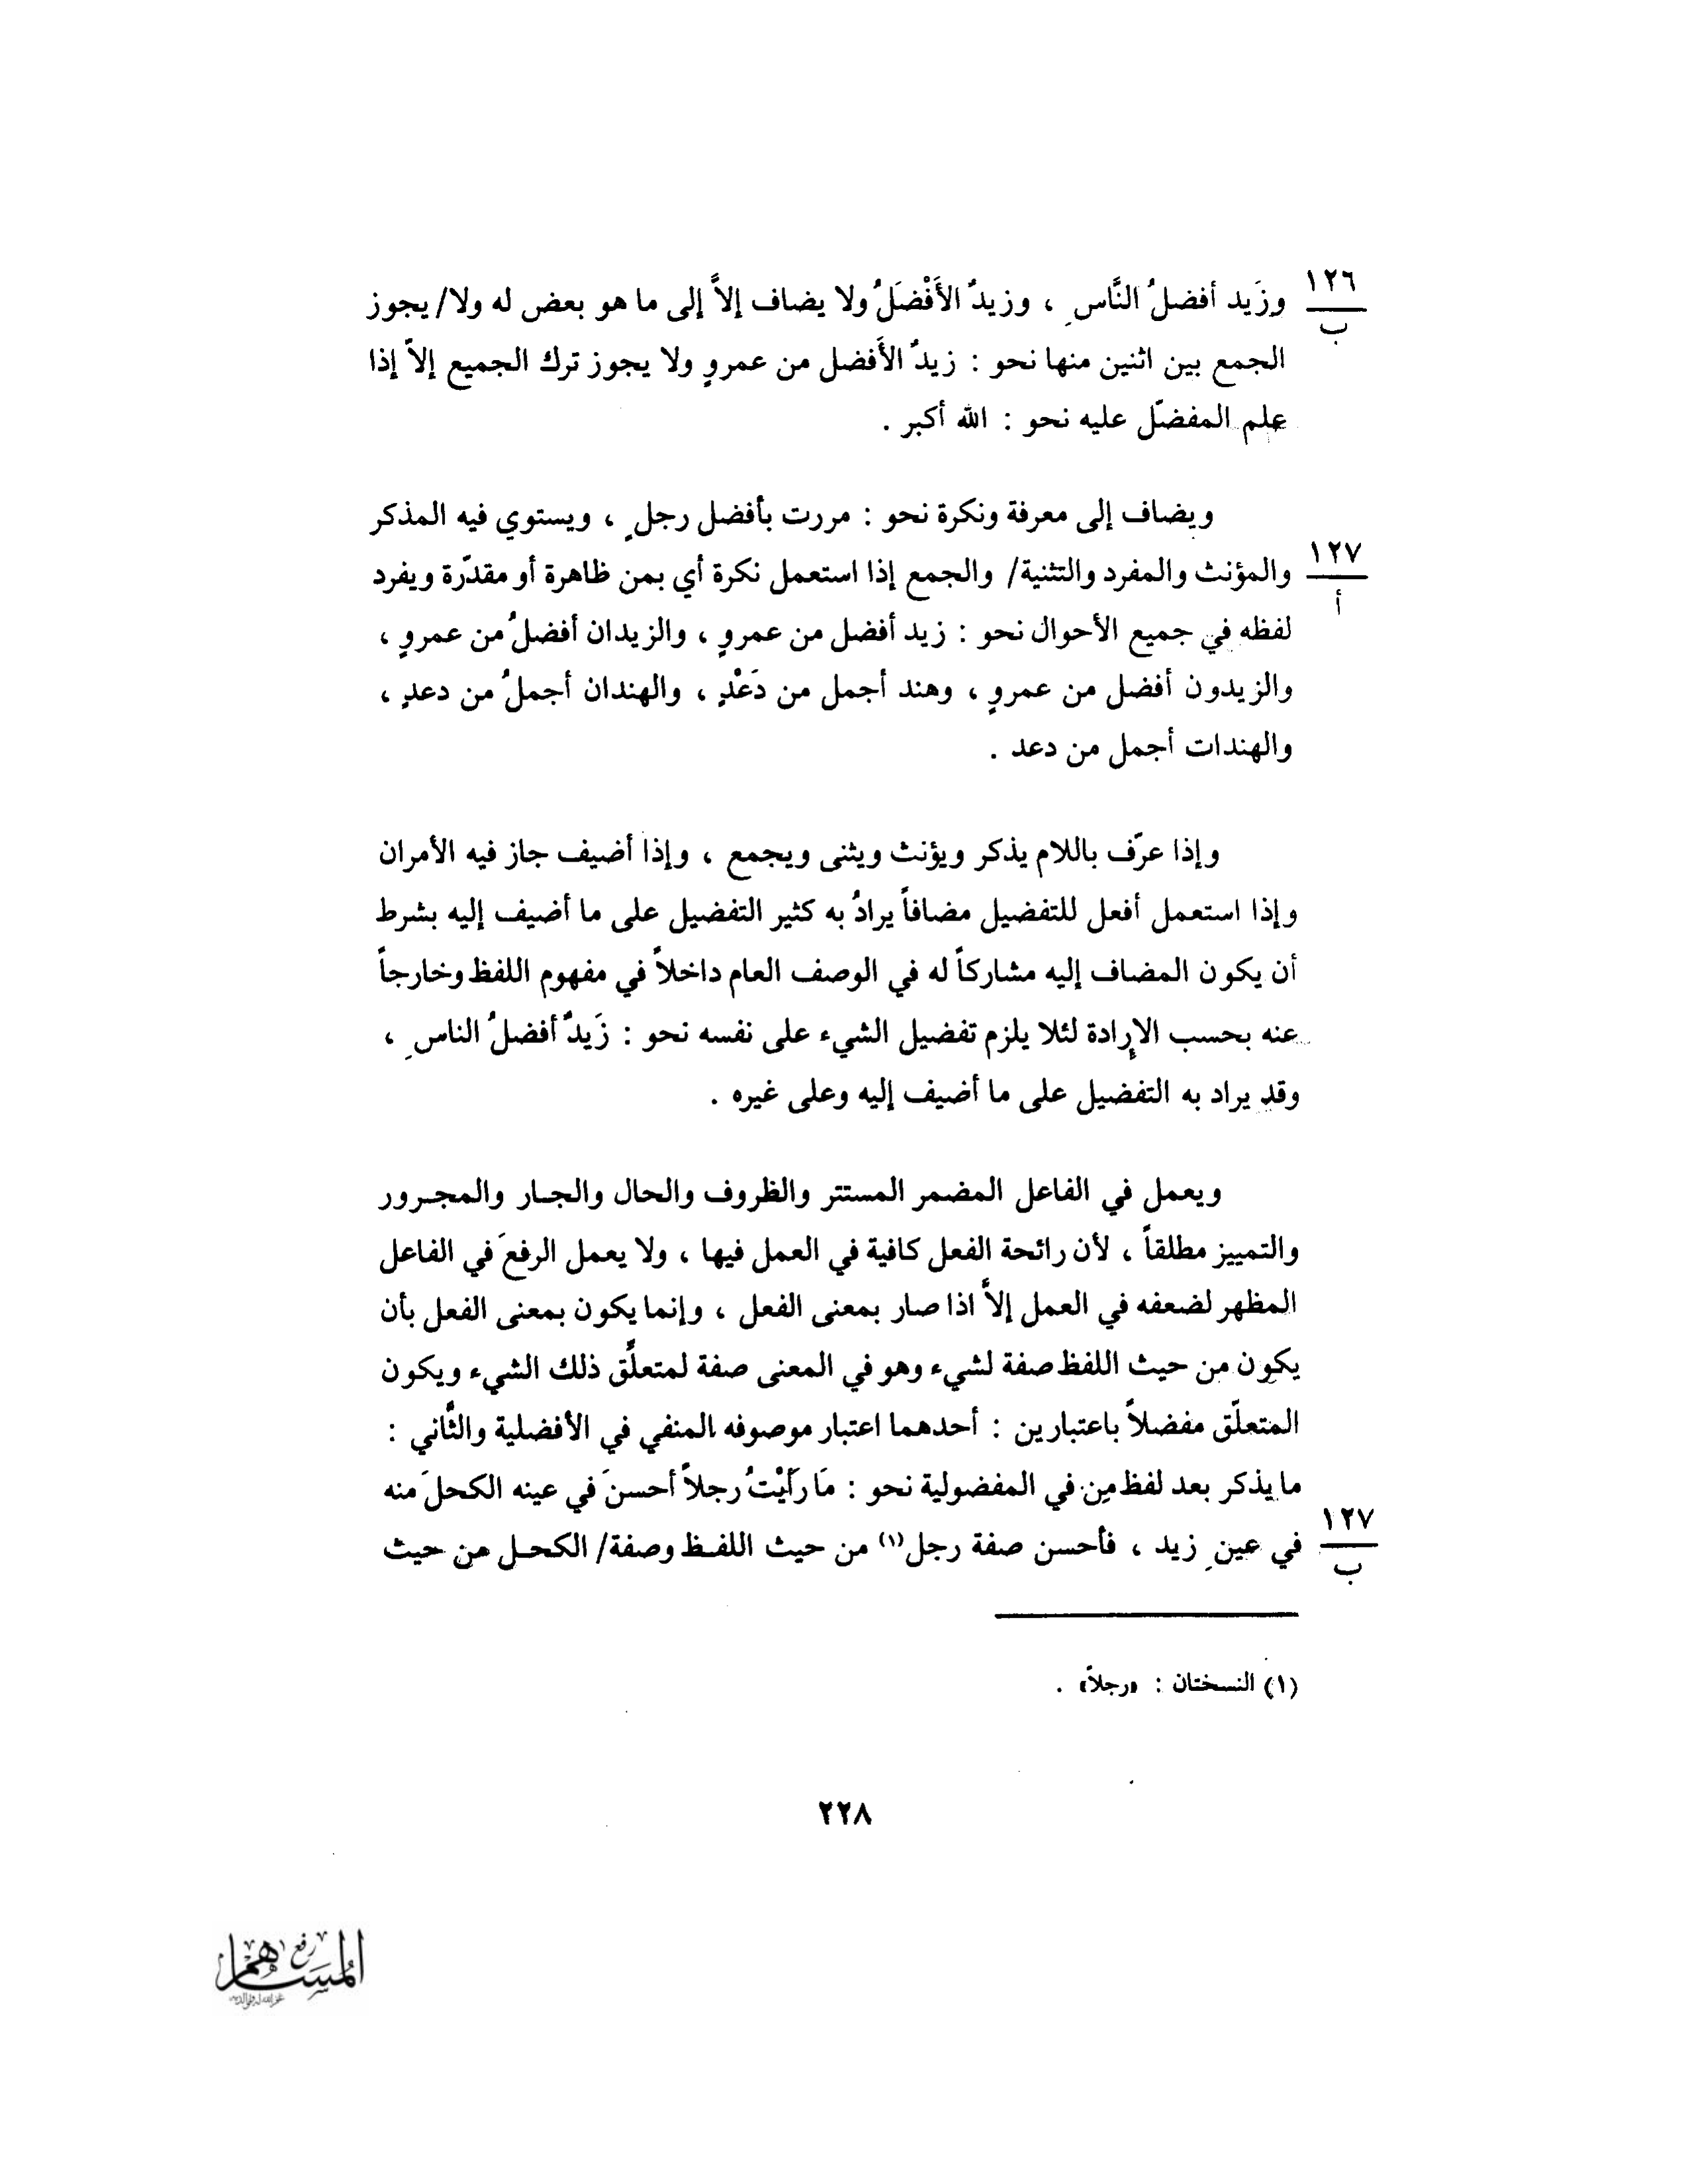 ١٢٦
ب
وزَيد أفضلُ النَّاسِ ، وزيدٌ الأَفْضَلُ ولا يضاف إلاَّ إلى ما هو بعض له ولا/ يجوز
الجمع بين اثنين منها نحو : زيدٌ الأَفضل من عمروٍ ولا يجوز ترك الجميع إلاّ إذا
علم المفضّل عليه نحو : الله أكبر .
ويضاف إلى معرفة ونكرة نحو : مررت بأفضل رجلٍ ، ويستوي فيه المذكر
١٢٧
أ
والمؤنث والمفرد والتثنية/ والجمع إذا استعمل نكرة أي بمن ظاهرة أو مقدّرة ويفرد
لفظه في جميع الأحوال نحو : زيد أفضل من عمروٍ ، والزيدان أفضلُ من عمروٍ ،
والزيدون أفضل من عمروٍ ، وهند أجمل من دَعْدٍ ، والهندان أجملُ من دعدٍ ،
والهندات أجمل من دعد .
وإذا عرّف باللام يذكر ويؤنث ويثنى ويجمع ، وإذا أضيف جاز فيه الأمران
وإذا استعمل أفعل للتفضيل مضافاً يرادُ به كثير التفضيل على ما أضيف إليه بشرط
أن يكون المضاف إليه مشاركاً له في الوصف العام داخلاً في مفهوم اللفظ وخارجاً
عنه بحسب الإرادة لئلا يلزم تفضيل الشيء على نفسه نحو : زَيدٌ أفضلُ الناسِ ،
وقد يراد به التفضيل على ما أضيف إليه وعلى غيره .
ويعمل في الفاعل المضمر المستتر والظروف والحال والجار والمجرور
والتمييز مطلقاً ، لأن رائحة الفعل كافية في العمل فيها ، ولا يعمل الرفعَ في الفاعل
المظهر لضعفه في العمل إلاَّ اذا صار بمعنى الفعل ، وإنما يكون بمعنى الفعل بأن
يكون من حيث اللفظ صفة لشيء وهو في المعنى صفة لمتعلَّق ذلك الشيء ويكون
المتعلّق مفضلاً باعتبارين : أحدهما اعتبار موصوفه المنفي في الأفضلية والثَّاني :
ما يذكر بعد لفظ مِن في المفضولية نحو : مَا رَأَيْتُ رجلاً أحسنَ في عينه الكحلَ منه
١٢٧
ب
في عينِ زيد ، فأحسن صفة رجل(١) من حيث اللفظ وصفة/ الكحل من حيث
(١) النسختان : «رجلاً» .
٢٢٨
رفع
المساهم
غفر الله له ولوالديه